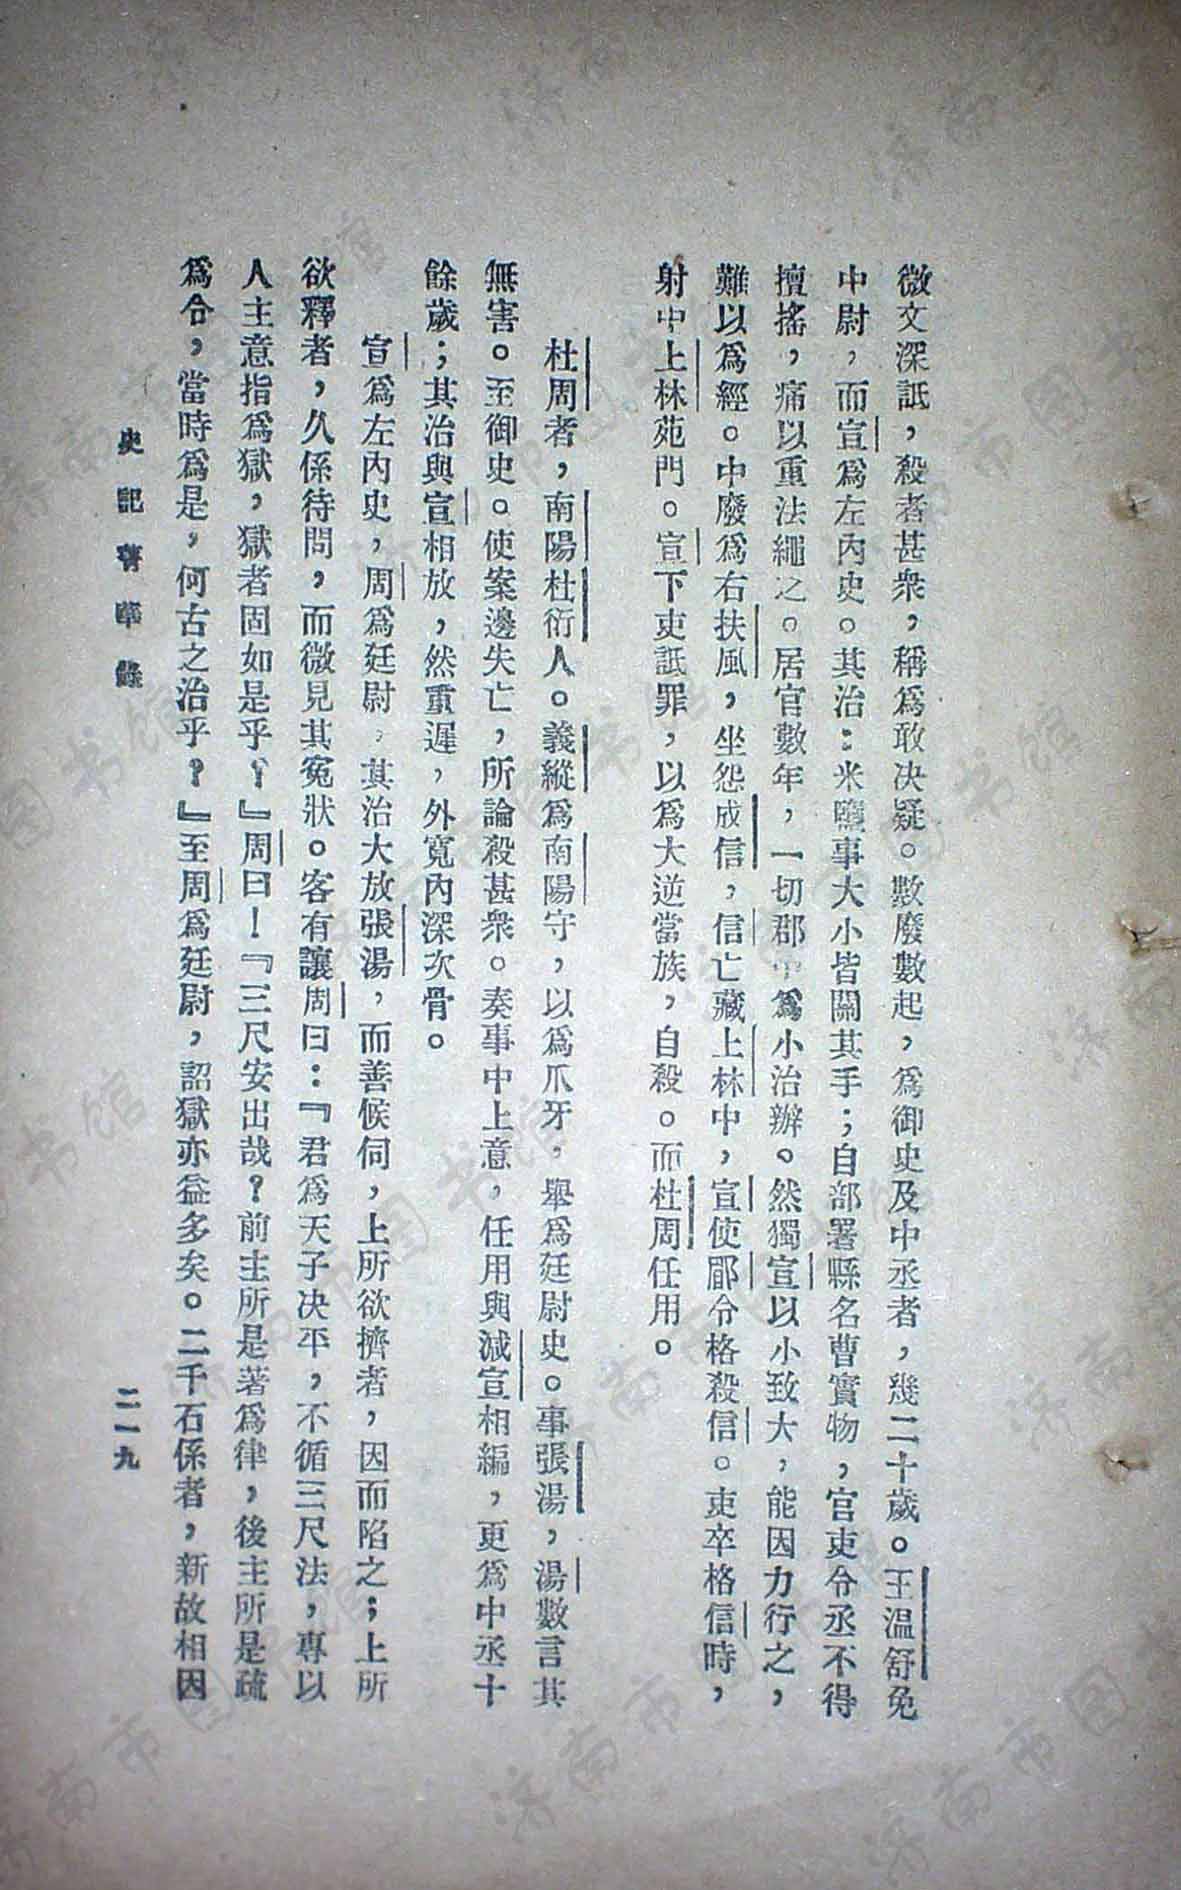 微文深詆，殺者甚衆，稱爲敢决疑。數廢數起，爲御史及中丞者，幾二十歲。王溫舒免
中尉，而宣爲左內史。其治：米鹽事大小皆關其手；自部署縣名曹實物，官吏令丞不得
擅搖，痛以重法繩之。居官數年，一切郡中爲小治辦。然獨宣以小致大，能因力行之，
難以爲經。中廢爲右扶風，坐怨成信，信亡藏上林中，宣使郿令格殺信。吏卒格信時，
射中上林苑門。宣下吏詆罪，以爲大逆當族，自殺。而杜周任用。
杜周者，南陽杜衍人。義縱爲南陽守，以爲爪牙，舉爲廷尉史。事張湯，湯數言其
無害。至御史。使案邊失亡，所論殺甚衆。奏事中上意，任用與減宣相編，更爲中丞十
餘歲；其治與宣相放，然重遲，外寬內深次骨。
宣爲左內史，周爲廷尉，其治大放張湯，而善候伺，上所欲擠者，因而陷之；上所
欲釋者，久係待問，而微見其冤狀。客有讓周曰：『君爲天子决平，不循三尺法，專以
人主意指爲獄，獄者固如是乎？』周曰！『三尺安出哉？前主所是著爲律，後主所是疏
爲令，當時爲是，何古之治乎？』至周爲廷尉，詔獄亦益多矣。二千石係者，新故相因
史記菁華錄
二一九
济南市图书馆